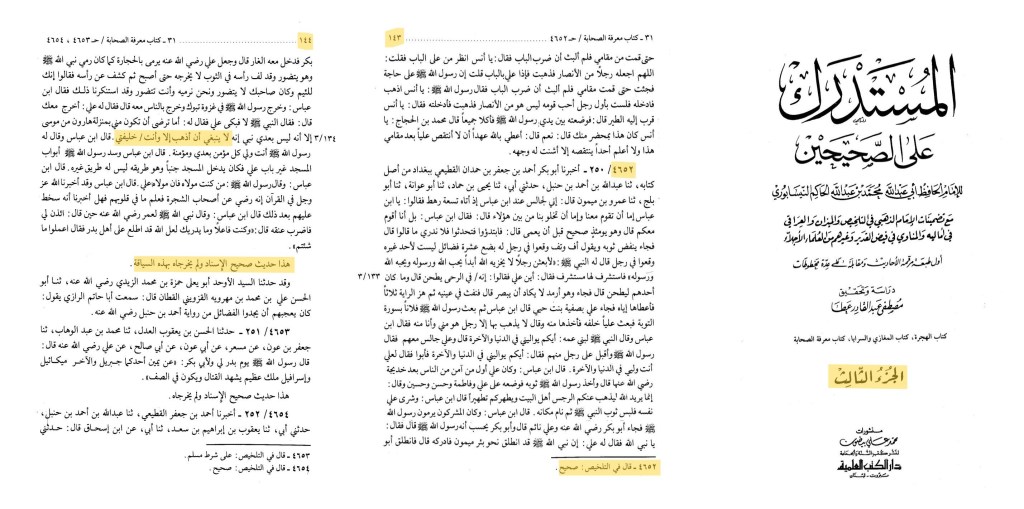 المستدرك
على الصحيحين
للإمام الحافظ أبي عبد الله محمد بن عبد الله الحاكم النيسابوري
مع تضمينات الإمام الذهبي في التلخيص والميزان والعراقي
في أماليه والمناوي في فيض القدير وغيرهم من العلماء الأجلاء
دراسة وتحقيق
مصطفى عبد القادر عطا
كتاب الهجرة، كتاب المغازي والسرايا، كتاب معرفة الصحابة
الجزء الثالث
منشورات
محمد علي بيضون
دار الكتب العلمية
بيروت - لبنان
٣١ - كتاب معرفة الصحابة / حـ ٤٦٥٢ ١٤٣
حتى قمت من مقامي فلم ألبث أن ضرب الباب فقال: يا أنس انظر من على الباب فقلت:
اللهم اجعله رجلاً من الأنصار فذهبت فإذا علي بالباب قلت إن رسول الله ﷺ على حاجة
فجئت حتى قمت مقامي فلم ألبث أن ضرب الباب فقال رسول الله ﷺ: يا أنس اذهب
فادخله فلست بأول رجل أحب قومه ليس هو من الأنصار فذهبت فأدخلته فقال: يا أنس
قرب إليه الطير قال: فوضعته بين يدي رسول الله ﷺ فأكلا جميعاً قال محمد بن الحجاج: يا
أنس كان هذا بمحضر منك قال: نعم قال: أعطي بالله عهداً أن لا أنتقص علياً بعد مقامي
هذا ولا أعلم أحداً ينتقصه إلا أشنت له وجهه.
٤٦٥٢ / ٢٥٠ - أخبرنا أبو بكر أحمد بن جعفر بن حمدان القطيعي ببغداد من أصل
كتابه، ثنا عبدالله بن أحمد بن حنبل، حدثني أبي، ثنا يحيى بن حماد، ثنا أبو عوانة، ثنا أبو
بلج، ثنا عمرو بن ميمون قال: إني لجالس عند ابن عباس إذ أتاه تسعة رهط فقالوا: يا ابن
عباس إما أن تقوم معنا وإما أن تخلو بنا من بين هؤلاء قال: فقال ابن عباس: بل أنا أقوم
معكم قال وهو يومئذٍ صحيح قبل أن يعمى قال: فابتدؤوا فتحدثوا فلا ندري ما قالوا قال
فجاء ينفض ثوبه ويقول أف وتف وقعوا في رجل له بضع عشرة فضائل ليست لأحد غيره
وقعوا في رجل قال له النبي ﷺ: «لأبعثن رجلاً لا يخزيه الله أبداً يحب الله ورسوله ويحبه الله
ورسوله» فاستشرف لها مستشرف فقال: أين علي فقالوا: إنه/ في الرحى يطحن قال وما كان ٣/١٣٣
أحدهم ليطحن قال فجاء وهو أرمد لا يكاد أن يبصر قال فنفث في عينيه ثم هز الراية ثلاثاً
فأعطاها إياه فجاء علي بصفية بنت حيي قال ابن عباس ثم بعث رسول الله ﷺ فلاناً بسورة
التوبة فبعث علياً خلفه فأخذها منه وقال لا يذهب بها إلا رجل هو مني وأنا منه فقال ابن
عباس وقال النبي لبني عمه: أيكم يواليني في الدنيا والآخرة قال وعلي جالس معهم فقال
رسول الله ﷺ وأقبل على رجل منهم فقال: أيكم يواليني في الدنيا والآخرة فأبوا فقال لعلي
أنت وليي في الدنيا والآخرة. قال ابن عباس: وكان علي أول من آمن من الناس بعد خديجة
رضي الله عنها قال وأخذ رسول الله ﷺ ثوبه فوضعه على علي وفاطمة وحسن وحسين وقال:
إنما يريد الله ليذهب عنكم الرجس أهل البيت ويطهركم تطهيراً قال ابن عباس: وشرى علي
نفسه فلبس ثوب النبي ﷺ ثم نام مكانه. قال ابن عباس: وكان المشركون يرمون رسول الله
ﷺ فجاء أبو بكر رضي الله عنه وعلي نائم قال وأبو بكر يحسب أنه رسول الله ﷺ قال: فقال
يا نبي الله فقال له علي: إن نبي الله ﷺ قد انطلق نحو بئر ميمون فادركه قال فانطلق أبو
٤٦٥٢ - قال في التلخيص: صحيح.
١٤٤ ٣١ - كتاب معرفة الصحابة / حـ ٤٦٥٣ ، ٤٦٥٤
بكر فدخل معه الغار قال وجعل علي رضي الله عنه يرمى بالحجارة كما كان رمي نبي الله ﷺ
وهو يتضور وقد لف رأسه في الثوب لا يخرجه حتى أصبح ثم كشف عن رأسه فقالوا إنك
للئيم وكان صاحبك لا يتضور ونحن نرميه وأنت تتضور وقد استنكرنا ذلك فقال ابن
عباس: وخرج رسول الله ﷺ في غزوة تبوك وخرج بالناس معه قال فقال له علي: أخرج معك
قال: فقال النبي ﷺ لا فبكى علي فقال له: أما ترضى أن تكون مني بمنزلة هارون من موسى
٣/١٣٤ إلا أنه ليس بعدي نبي إنه لا ينبغي أن أذهب إلا وأنت/ خليفتي قال ابن عباس وقال له
رسول الله ﷺ أنت ولي كل مؤمن بعدي ومؤمنة. قال ابن عباس وسد رسول الله ﷺ أبواب
المسجد غير باب علي فكان يدخل المسجد جنباً وهو طريقه ليس له طريق غيره. قال ابن
عباس: وقال رسول الله ﷺ: من كنت مولاه فإن مولاه علي. قال ابن عباس وقد أخبرنا الله عز
وجل في القرآن إنه رضي عن أصحاب الشجرة فعلم ما في قلوبهم فهل أخبرنا أنه سخط
عليهم بعد ذلك قال ابن عباس: وقال نبي الله ﷺ لعمر رضي الله عنه حين قال: ائذن لي
فاضرب عنقه قال: «وكنت فاعلاً وما يدريك لعل الله قد اطلع على أهل بدر فقال اعملوا ما
شئتم».
هذا حديث صحيح الإسناد ولم يخرجاه بهذه السياقة.
وقد حدثنا السيد الأوحد أبو يعلى حمزة بن محمد الزيدي رضي الله عنه، ثنا أبو
الحسن علي بن محمد بن مهرويه القزويني القطان قال: سمعت أبا حاتم الرازي يقول:
كان يعجبهم أن يجدوا الفضائل من رواية أحمد بن حنبل رضي الله عنه.
٤٦٥٣ / ٢٥١ - حدثنا الحسن بن يعقوب العدل، ثنا محمد بن عبد الوهاب، ثنا
جعفر بن عون، عن مسعر، عن أبي عون، عن أبي صالح، عن علي رضي الله عنه قال:
قال رسول الله ﷺ يوم بدر لي ولأبي بكر: «عن يمين أحدكما جبريل والآخر ميكائيل
وإسرافيل ملك عظيم يشهد القتال ويكون في الصف».
هذا حديث صحيح الإسناد ولم يخرجاه.
٤٦٥٤ / ٢٥٢ - أخبرنا أحمد بن جعفر القطيعي، ثنا عبدالله بن أحمد بن حنبل،
حدثني أبي، ثنا يعقوب بن إبراهيم بن سعد، ثنا أبي، عن ابن إسحاق قال: حدثني
٤٦٥٣ - قال في التلخيص: على شرط مسلم.
٤٦٥٤ - قال في التلخيص: صحيح.